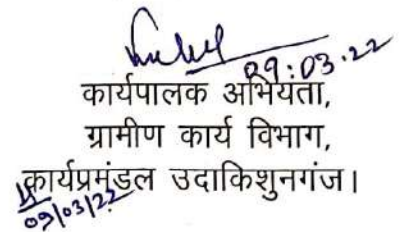 09:03.22
कार्यपालक अभियंता,
ग्रामीण कार्य विभाग,
कार्यप्रमंडल उदाकिशुनगंज।
09/03/22